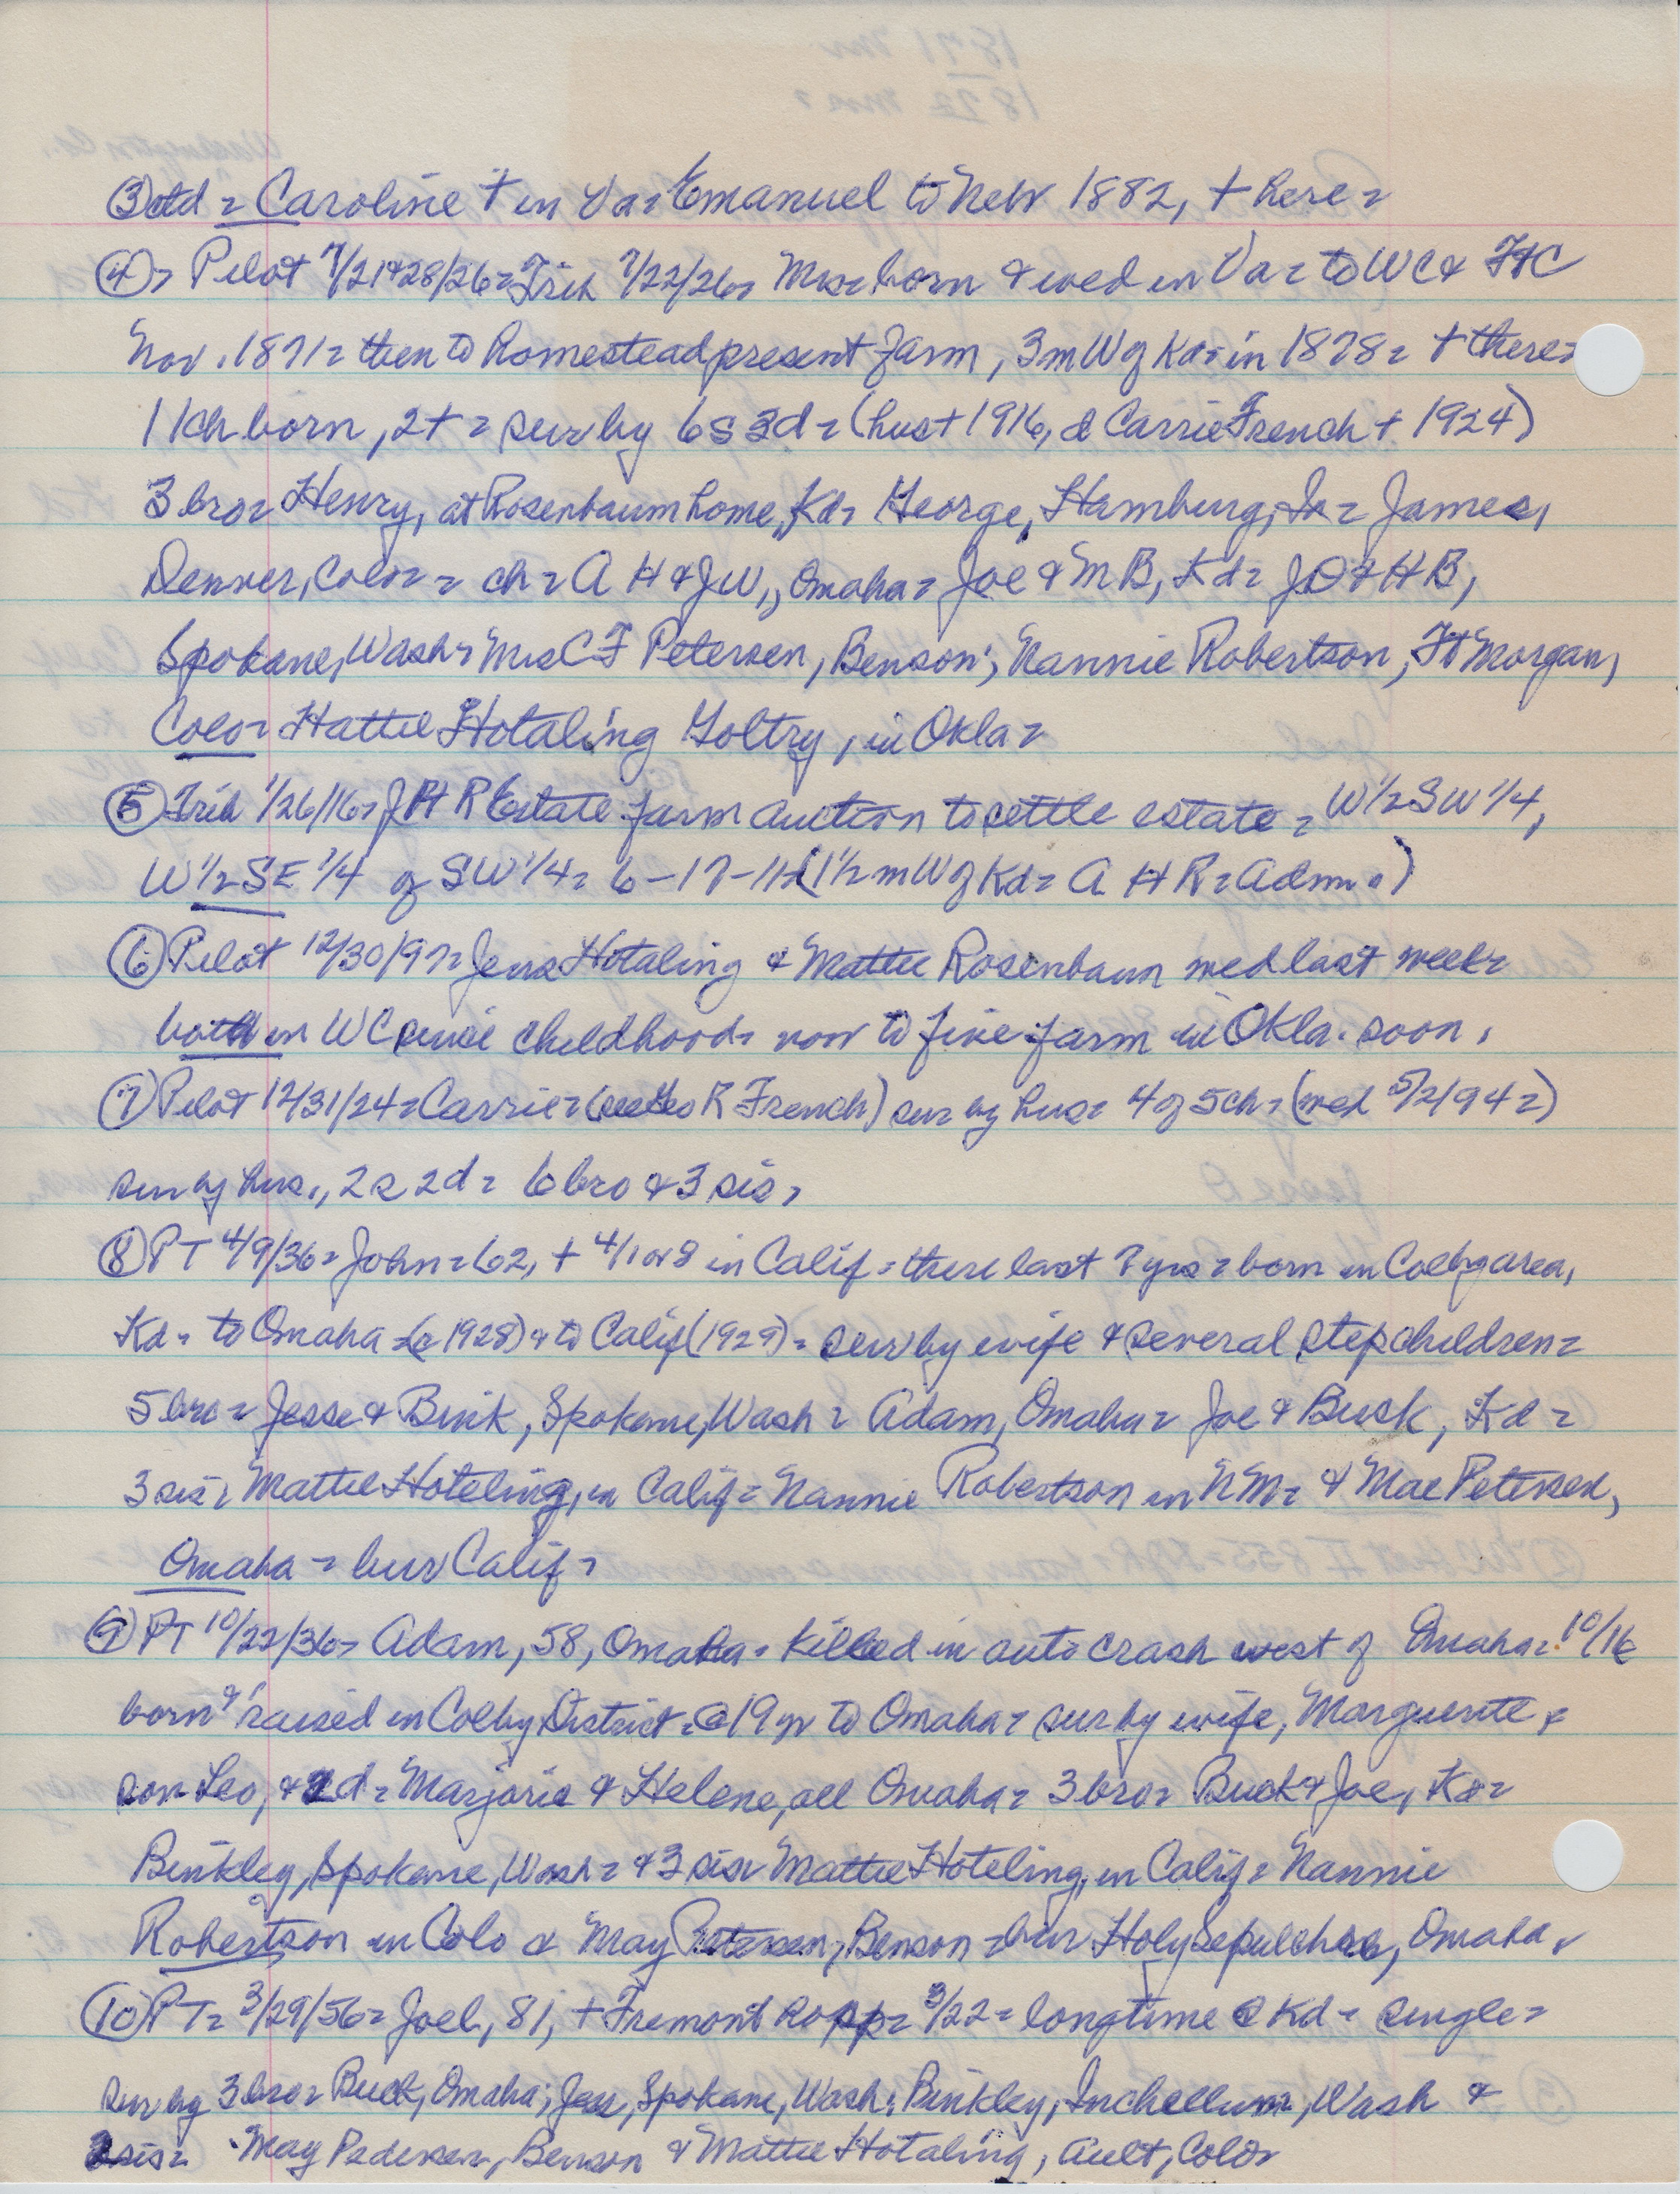 ③ctd = Caroline + in Va = Emanuel to Nebr 1882, + here =
④ = Pilot 7/21&28/26 = Trib 7/22/26 = Mrs = born & wed in Va = to WC & Ft C
Nov. 1871 = then to homestead present farm, 3 m W of Kd = in 1878 = + there =
11 ch born, 2+ = sur by 6s 3d = (hus + 1916, d Carrie French + 1924)
3 bro = Henry, at Rosenbaum home, Kd = George, Hamburg, Ia = James,
Denver, Colo = = ch = A H & J W,, Omaha = Joe & M B, Kd = J O & H B,
Spokane, Wash = Mrs C F Petersen, Benson; Nannie Robertson, Ft Morgan,
Colo = Hattie Hotaling Goltry, in Okla =
⑤ Trib 1/26/16 = J H R Estate farm auction to settle estate = W 1/2 SW 1/4,
W 1/2 SE 1/4 of SW 1/4 = 6-17-11 = (1 1/2 m W of Kd = A H R = Adm.)
⑥ Pilot 12/30/97 = Jens Hotaling & Mattie Rosenbaum wed last week =
both in WC since childhood = now to fine farm in Okla. soon.
⑦ Pilot 12/31/24 = Carrie = (see Geo R French) sur by hus = 4 of 5 ch = (wed 5/2/94 =)
sur by hus., 2 s 2d = 6 bro & 3 sis =
⑧ PT 4/9/36 = John = 62, + 4/1 or 8 in Calif = there last 7 yrs = born in Colby area,
Kd = to Omaha = (c 1928) & to Calif (1929) = sur by wife & several stepchildren =
5 bro = Jesse & Bink, Spokane, Wash = Adam, Omaha = Joe & Buck, Kd =
3 sis = Mattie Hoteling, in Calif = Nannie Robertson in NM = & Mae Petersen,
Omaha = bur Calif =
⑨ PT 10/22/36 = Adam, 58, Omaha = killed in auto crash west of Omaha = 10/16
born & raised in Colby District = @ 19 yr to Omaha = sur by wife, Marguerite,
son Leo, & 2d = Marjorie & Helene, all Omaha = 3 bro = Buck & Joe, Kd =
Binkley, Spokane, Wash = & 3 sis = Mattie Hoteling, in Calif = Nannie
Robertson in Colo & May Petersen, Benson = bur Holy Sepulchre, Omaha.
⑩ PT = 3/29/56 = Joel, 81, + Fremont hosp = 3/22 = longtime @ Kd = single =
sur by 3 bro = Buck, Omaha; Jess, Spokane, Wash; Binkley, Inchelium, Wash &
2 sis = May Pedersen, Benson & Mattie Hotaling, Ault, Colo =